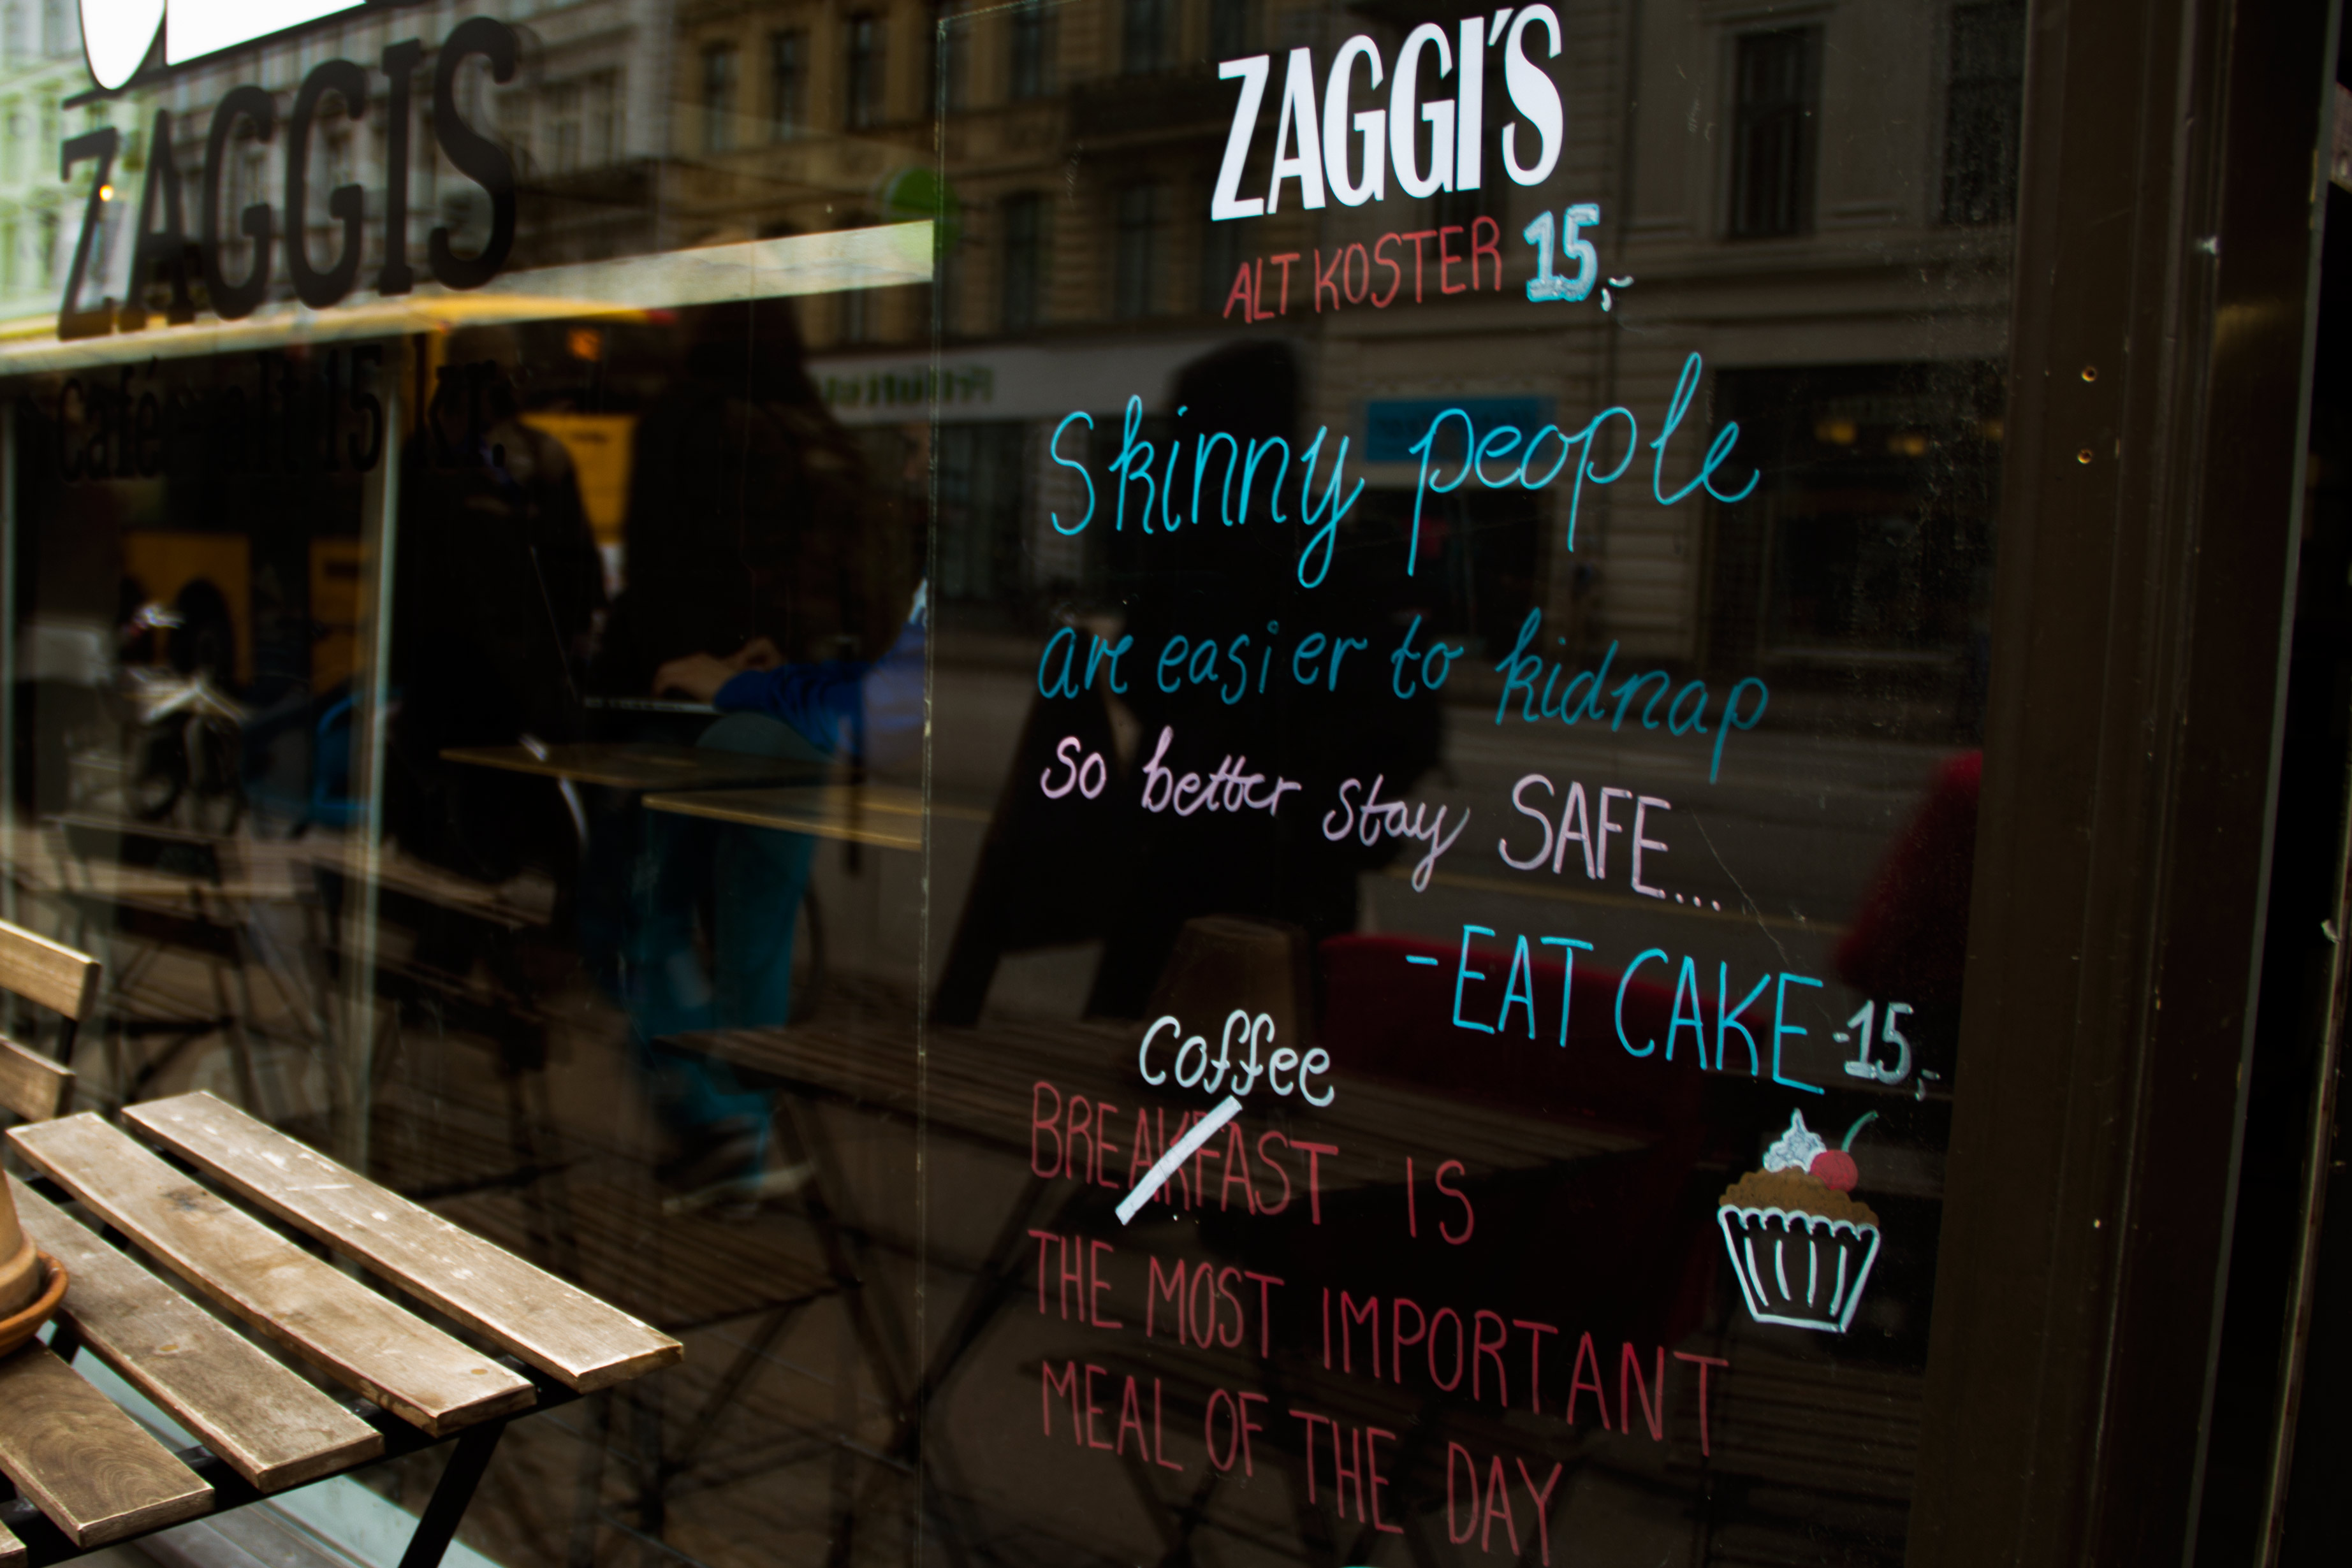 ZAGGIS
Café alt 15 kr.
ZAGGI'S
ALT KOSTER 15,-
Skinny people
are easier to kidnap
so better stay SAFE...
- EAT CAKE -15,-
Coffee
BREAKFAST IS
THE MOST IMPORTANT
MEAL OF THE DAY